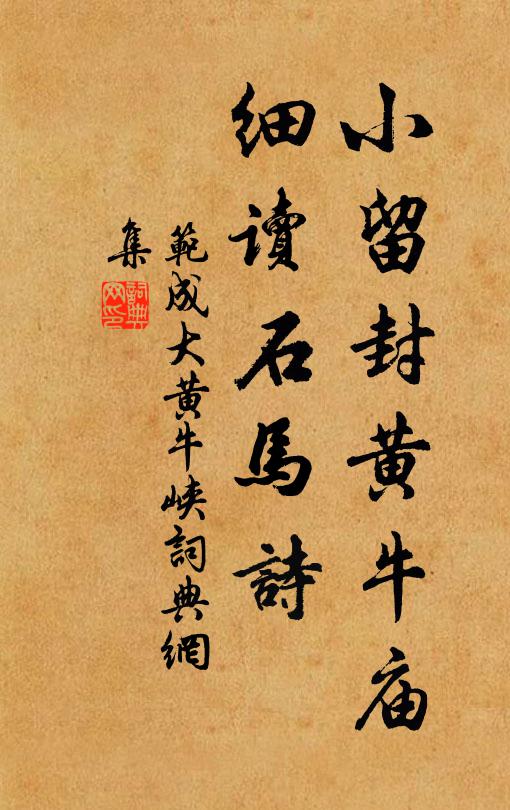 小留封黄牛庙
细读石馬詩
範成大黄牛峡詞典網
集
詞典網印